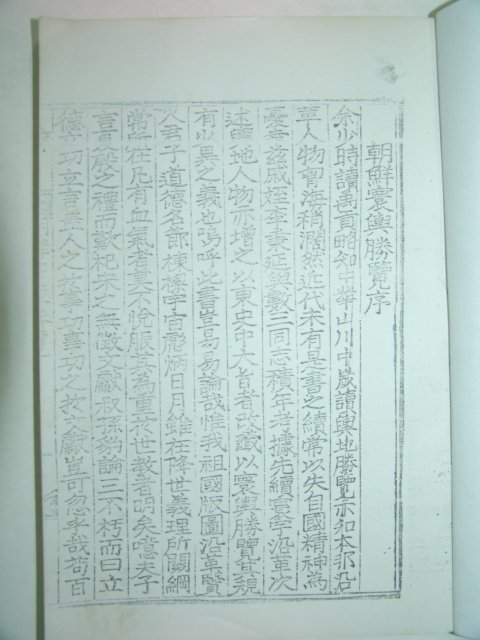 朝鮮寰輿勝覽序
余少時讀禹貢略知中華山川中歲讀輿地勝覽亦知本邦沿
革人物胷海稍濶然近代未有是書之續常以失自國精神爲
憂玆戚姪李秉延與數三同志積年考據先續寰宇沿革次
述輿地人物亦增之以東史中大旨者改籤以寰輿勝覽其規
有以異之義也嗚呼此書豈易易論哉惟我祖國版圖沿革賢
人君子道德名節棟樑宇宙彪炳日月雖在降世義理所關綱
常所在凡有血氣者莫不悅服其爲重於世敎者明矣噫夫子
言夏殷之禮而歎杞宋之無徵文獻叔孫豹論三不朽而曰立
德立功立言盖人之於事功事功之於文獻豈可忽乎哉苟百